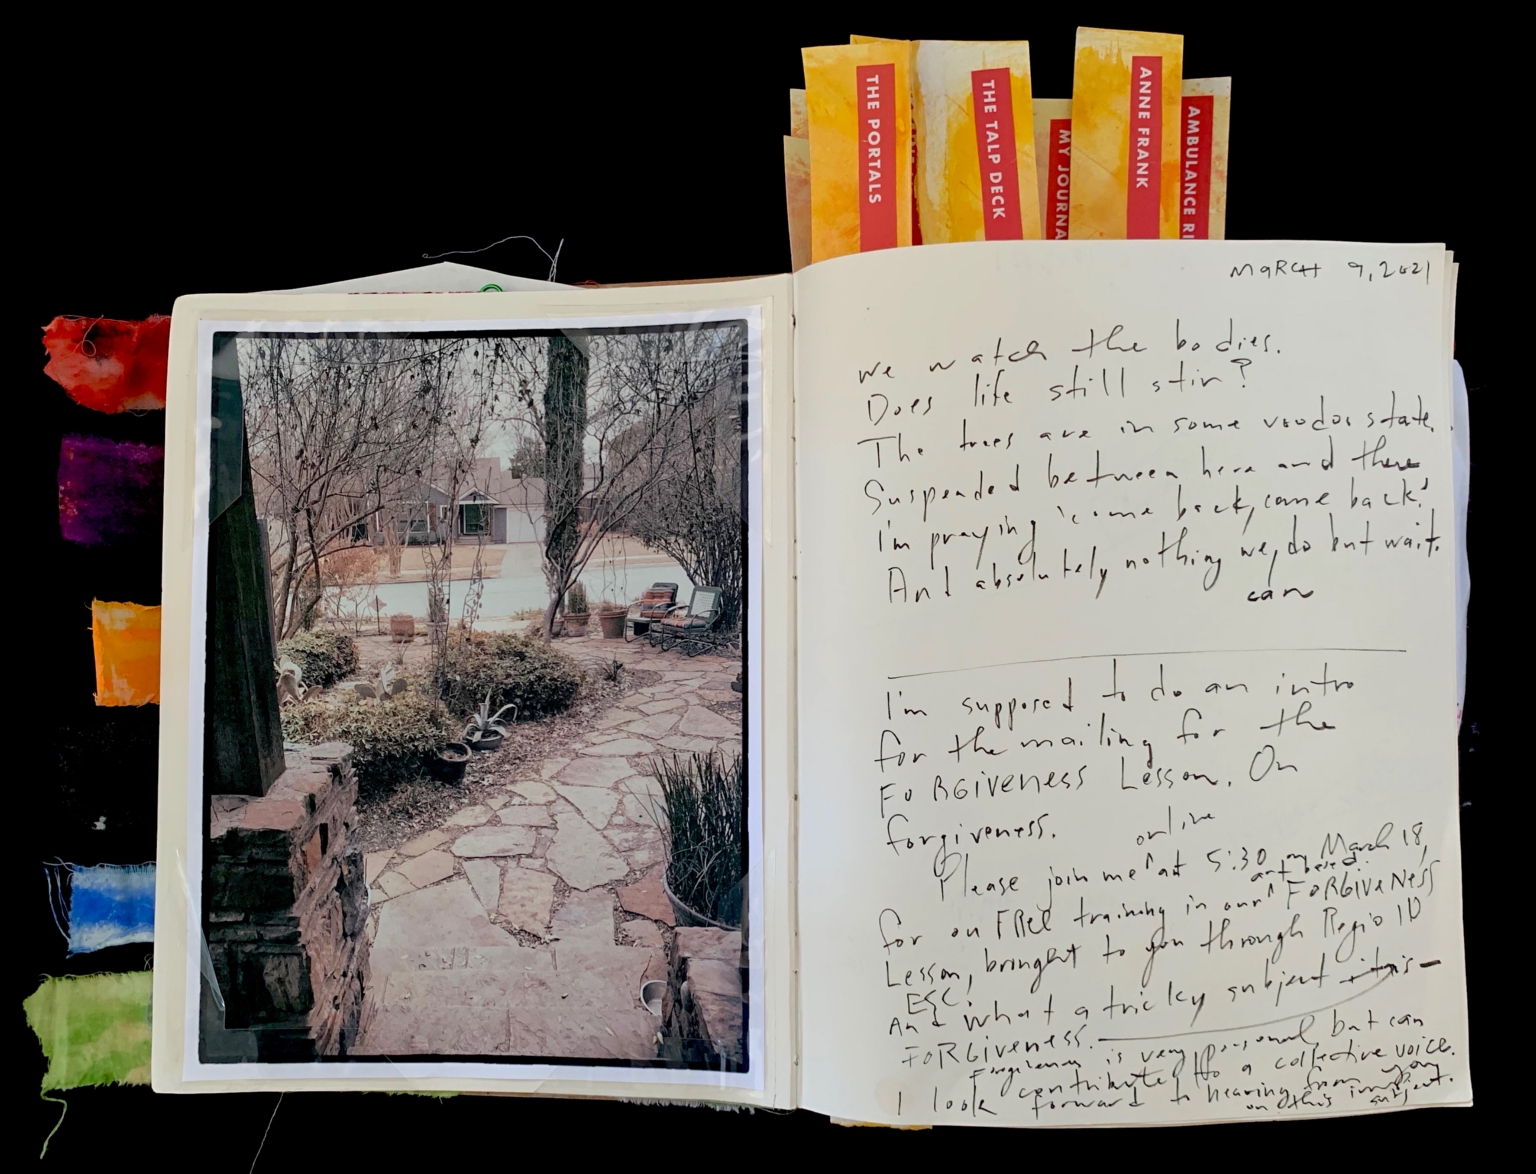 THE PORTALS
THE TALP DECK
MY JOURNA
ANNE FRANK
AMBULANCE RI
MARCH 9, 2021
we watch the bodies.
Does life still stir?
The trees are in some voodoo state.
Suspended between here and there
I'm praying 'come back, come back'.
And absolutely nothing we, do but wait.
can
I'm supposed to do an intro
for the mailing for the
FORGIVENESS Lesson. On
forgiveness.
online
Please join me ^ at 5:30 on March 18,
art based
for an FREE training in our ^ FORGIVENESS
Lesson, brought to you through Region 10
ESC.
And what a tricky subject it is—
FORGIVENESS.
Forgiveness is very personal, but can
contribute to a collective voice.
I look forward to hearing from you
on this subject.